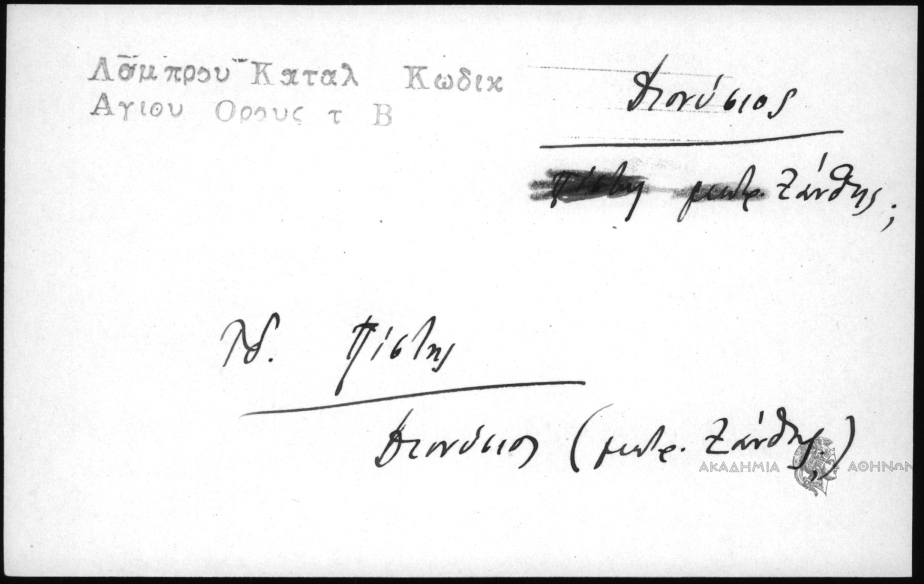 Λαμπρου Καταλ Κωδικ
Αγιου Ορους τ Β
Διονύσιος
Πίστης μητρ. Ξάνθης;
Πίστης
Διονύσιος (μητρ. Ξάνθης;)
ΑΚΑΔΗΜΙΑ ΑΘΗΝΩΝ